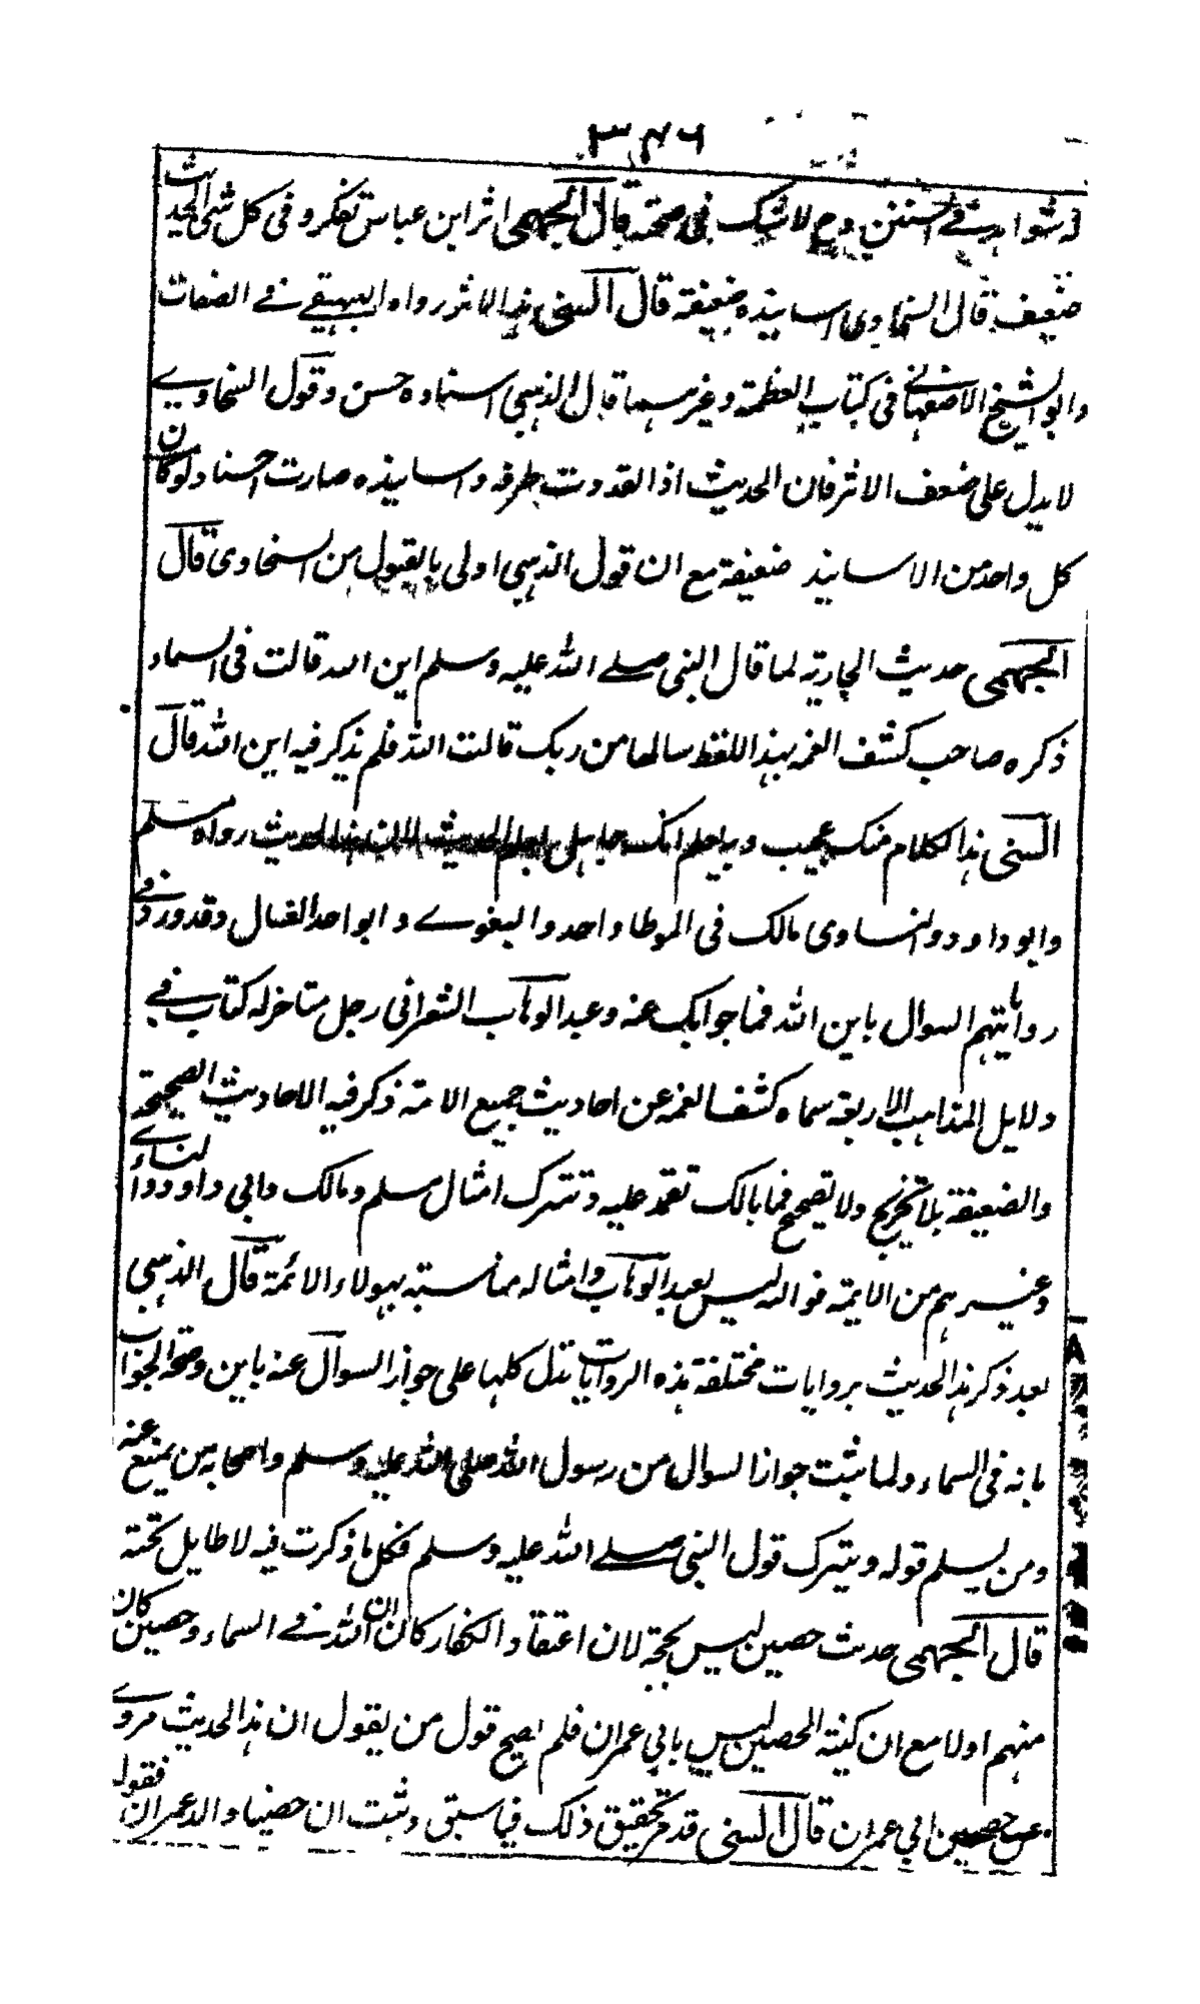 ٣٤٦
شواهد في السنن وح لا شك في صحته قال الجهمي اثر ابن عباس تفكروا في كل شي الحديث
ضعيف قال السخاوي اسانيذه ضعيفة قال السني هذا الاثر رواه البيهقے فے الصفات
وابو الشيخ الاصفهانے في كتاب العظمة وغيرهما قال الذهبي اسناده حسن وقول السخاوے
لا يدل على ضعف الاثر فان الحديث اذا تعددت طرقه واسانيذه صارت حسنا ولو كان
كل واحد من الاسانيذ ضعيفة مع ان قول الذهبي اولى بالقبول من السخاوى قال
الجهمي حديث الجارية لما قال النبي صلے الله عليه وسلم اين الله قالت في السماء
ذكره صاحب كشف الغمه بهذا اللفظ سالها من ربك قالت الله فلم يذكر فيه اين الله قال
السني هذا الكلام منك عجيب ويا حلم انك جاهل بعلم الحديث لان هذا الحديث رواه مسلم
وابو داود والنساوى مالك في الموطا واحمد والبغوے وابو احمد العسال وقد ورد فے
رواياتهم السوال باين الله فما جوابك عنه وعبد الوهاب الشعرانى رجل متاخر له كتاب فے
دلايل المذاهب الاربعة سماه كشف الغمه عن احاديث جميع الامة ذكر فيه الاحاديث الصحيحة
والضعيفة بلا تخريج ولا تصحيح فما بالك تعتمد عليه وتترك امثال مسلم ومالك وابي داود والنساے
وغيرهم من الايمة فوالله ليس لعبد الوهاب وامثاله مناسبة بهولاء الائمة قال الذهبي
بعد ذكر هذا الحديث بروايات مختلفة هذه الروايات تدل كلها على جواز السوال عنه باين وصحة الجواب
بانه في السماء ولما ثبت جواز السوال من رسول الله صلى الله عليه وسلم واصحابه من يمنع عنه
ومن يسلم قوله ويترك قول النبي صلے الله عليه وسلم فكل ما ذكرت فيه لا طايل تحته
قال الجهمي حديث حصين ليس بحجة لان اعتقاد الكفار كان ان الله فے السماء وحصين كان
منهم اولا مع ان كنية الحصين ليس بابي عمران فلم يصح قول من يقول ان هذا الحديث مروے
عن حصين ابي عمران قال السني قد مر تحقيق ذلك فيما سبق وثبت ان حصينا والد عمران فقوله